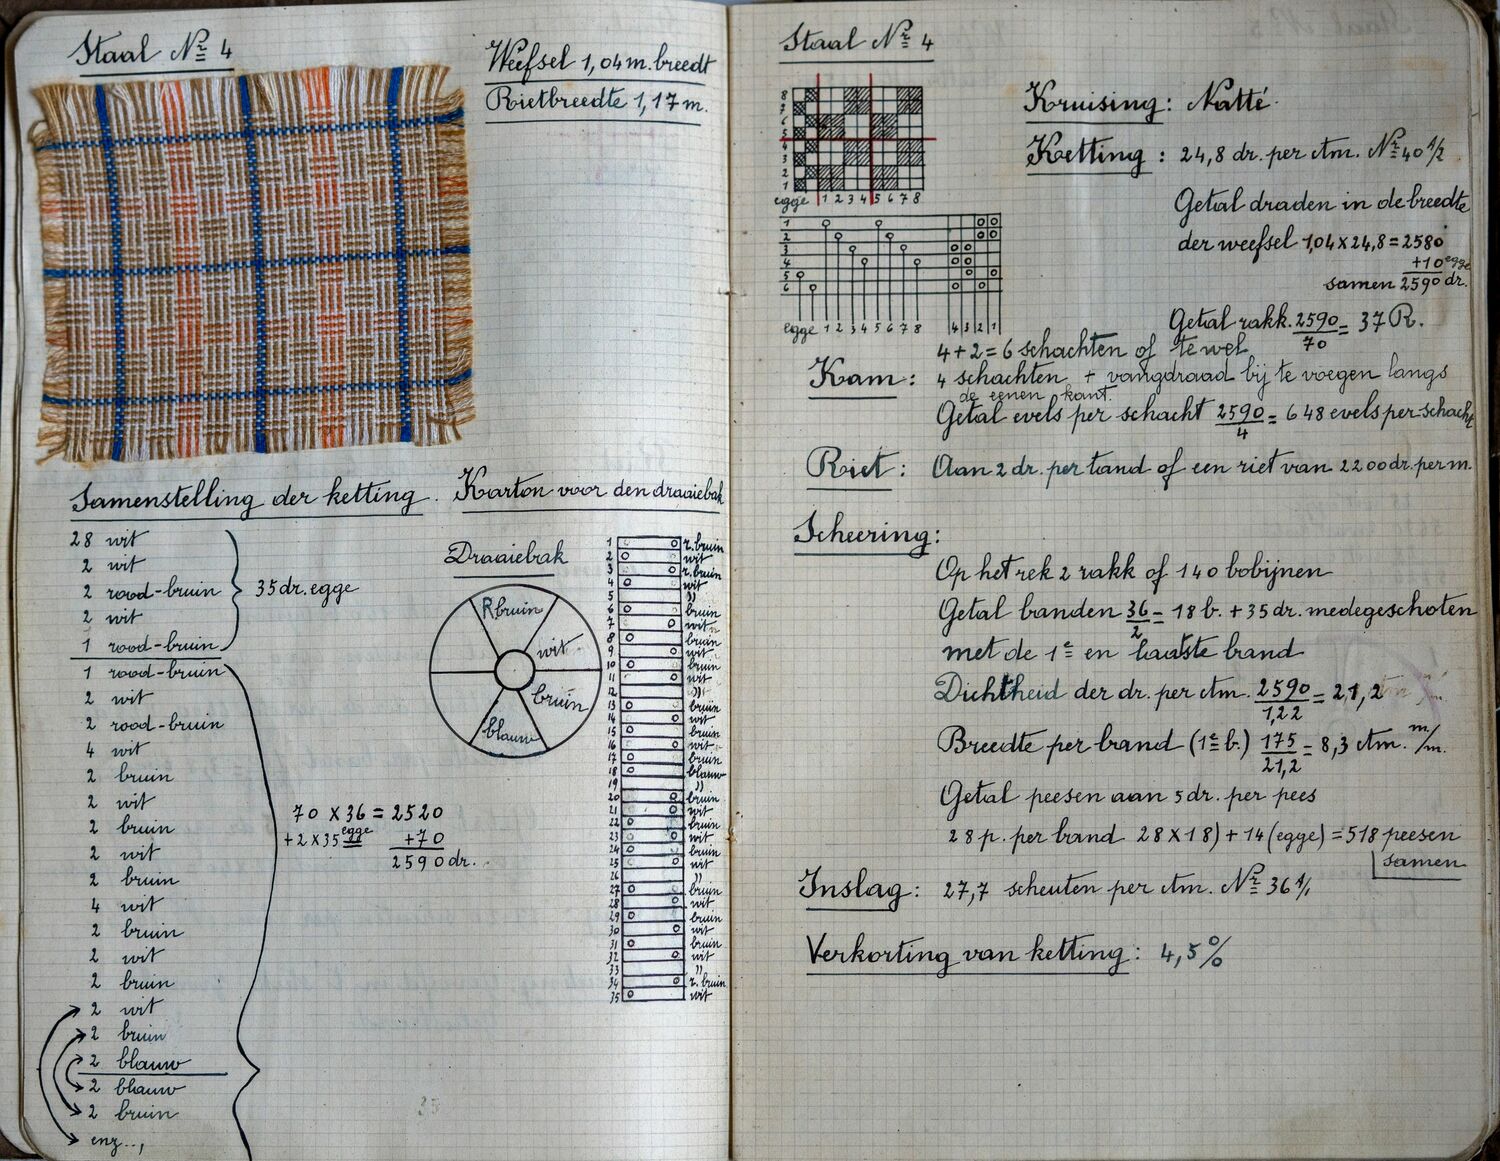 Staal Nr 4
Weefsel 1,04 m. breedt
Rietbreedte 1,17 m.
Samenstelling der ketting.
28 wit
2 wit
2 rood-bruin
2 wit
1 rood-bruin
35 dr. egge
1 rood-bruin
2 wit
2 rood-bruin
4 wit
2 bruin
2 wit
2 bruin
2 wit
2 bruin
4 wit
2 bruin
2 wit
2 bruin
2 wit
2 bruin
2 blauw
2 blauw
2 bruin
enz..,
70 x 36 = 2520
+ 2 x 35 egge +70
2590 dr.
Karton voor den draaiebak
Draaiebak
R bruin
wit
bruin
blauw
1 r. bruin
2 wit
3 r. bruin
4 wit
5 "
6 bruin
7 wit
8 bruin
9 wit
10 bruin
11 wit
12 "
13 bruin
14 wit
15 bruin
16 wit
17 bruin
18 blauw
19 "
20 bruin
21 wit
22 bruin
23 wit
24 bruin
25 wit
26 "
27 bruin
28 wit
29 bruin
30 wit
31 bruin
32 wit
33 "
34 r. bruin
35 wit
Staal Nr 4
8
7
6
5
4
3
2
1
egge 1 2 3 4 5 6 7 8
1
2
3
4
5
6
egge 1 2 3 4 5 6 7 8 4 3 2 1
Kruising: Natté
Ketting: 24,8 dr. per ctm. Nr 40 1/2
Getal draden in de breedte
der weefsel 1,04 x 24,8 = 2580
+10 egge
samen 2590 dr.
Getal rakk. 2590/70 = 37 R.
Kam: 4 + 2 = 6 schachten of tewel
4 schachten + vangdraad bij te voegen langs
de eenen kant.
Getal evels per schacht 2590/4 = 648 evels per schacht
Riet: Aan 2 dr. per tand of een riet van 2200 dr. per m.
Scheering:
Op het rek 2 rakk of 140 bobijnen
Getal banden 36/2 = 18 b. + 35 dr. medegeschoten
met de 1e en laatste band
Dichtheid der dr. per ctm. 2590/1,22 = 21,2
Breedte per band (1e b.) 175/21,2 = 8,3 ctm. m/m.
Getal peesen aan 5 dr. per pees
28 p. per band 28 x 18) + 14 (egge) = 518 peesen
samen
Inslag: 27,7 scheuten per ctm. Nr 36 1/1
Verkorting van ketting: 4,5 %